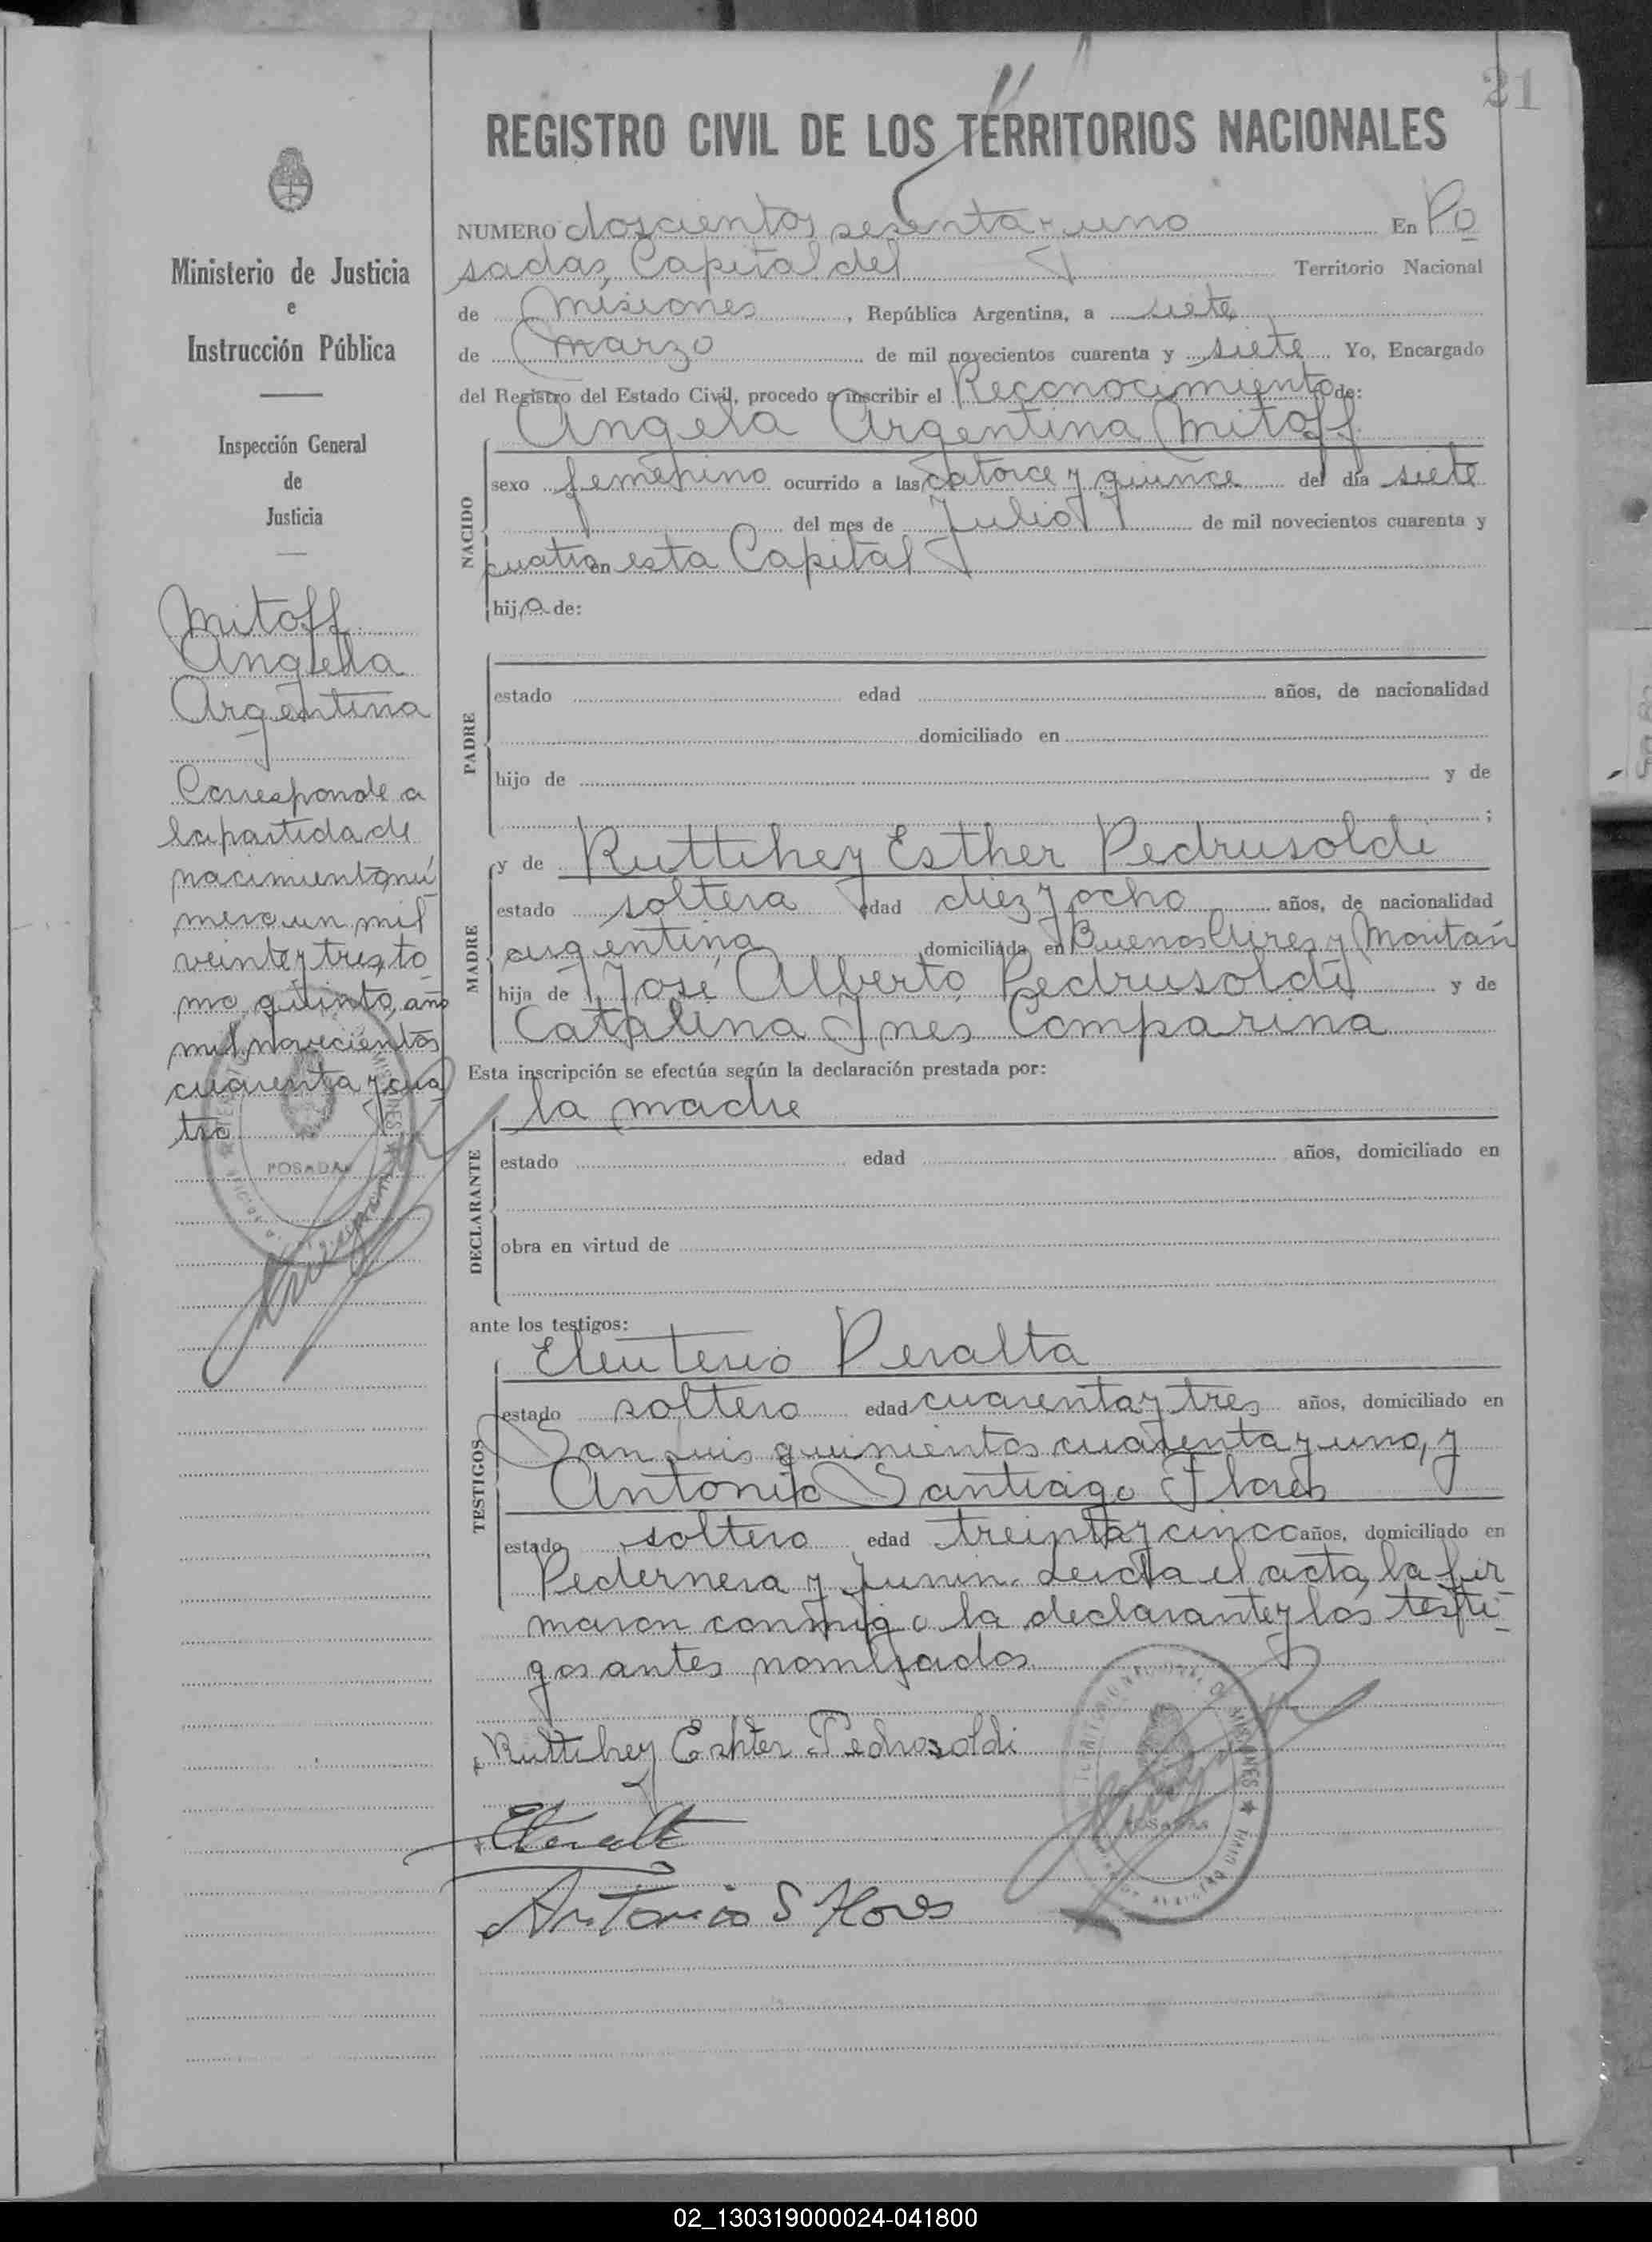 21
REGISTRO CIVIL DE LOS TERRITORIOS NACIONALES
NUMERO doscientos sesenta y uno En Po
sadas, Capital del Territorio Nacional
de Misiones, República Argentina, a siete
de Marzo de mil novecientos cuarenta y siete Yo, Encargado
del Registro del Estado Civil, procedo a inscribir el Reconocimiento de:
NACIDO
Angela Argentina Mitoff
sexo femenino ocurrido a las catorce y quince del día siete
del mes de Julio de mil novecientos cuarenta y
cuatro en esta Capital
hija de:
PADRE
estado edad años, de nacionalidad
domiciliado en
hijo de y de
;
MADRE
y de Ruttihey Esther Pedrusoldi
estado soltera edad diez y ocho años, de nacionalidad
argentina domiciliada en Buenos Aires y Moritán
hija de José Alberto Pedrusoldi y de
Catalina Ines Comparina
Esta inscripción se efectúa según la declaración prestada por:
DECLARANTE
la madre
estado edad años, domiciliado en
obra en virtud de
ante los testigos:
TESTIGOS
Eleuterio Peralta
estado soltero edad cuarenta y tres años, domiciliado en
San Luis quinientos cuarenta y uno, y
Antonio Santiago Flores
estado soltero edad treinta y cinco años, domiciliado en
Pedernera y Junin. Leida el acta, la fir
maron conmigo la declarante y los testi
gos antes nombrados
Ruttihey Eshter Pedrosoldi
EPeralta
Antonio S Flores
MISIONES
POSADAS
Ministerio de Justicia
e
Instrucción Pública
Inspección General
de
Justicia
Mitoff
Angela
Argentina
Corresponde a
la partida de
nacimiento nú
mero un mil
veinte y tres, to
mo quinto, año
mil novecientos
cuarenta y cua
tro
MISIONES
POSADAS
02_130319000024-041800